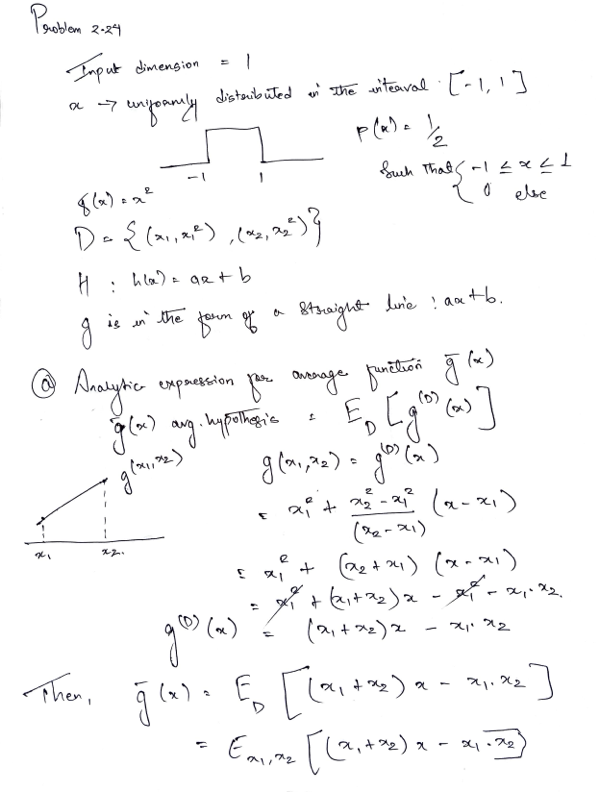 Problem 2.24
Input dimension = 1
x → uniformly distributed in the interval [-1, 1]
p(x) = 1/2
Such that { -1 ≤ x ≤ 1
0 else
-1 1
f(x) = x²
D = {(x₁, x₁²), (x₂, x₂²)}
H : h(x) = ax + b
g is in the form of a straight line : ax + b.
(a) Analytic expression for average function ḡ(x)
ḡ(x) avg. hypothesis = E_D [g^(D)(x)]
g(x₁,x₂)
g(x₁,x₂) = g^(D)(x)
= x₁² + (x₂² - x₁²)/(x₂ - x₁) (x - x₁)
x₁ x₂.
= x₁² + (x₂ + x₁) (x - x₁)
= x₁² + (x₁ + x₂) x - x₁² - x₁·x₂.
g^(D)(x) = (x₁ + x₂) x - x₁·x₂
Then, ḡ(x) = E_D [(x₁ + x₂) x - x₁·x₂]
= E_x₁,x₂ [(x₁ + x₂) x - x₁·x₂]